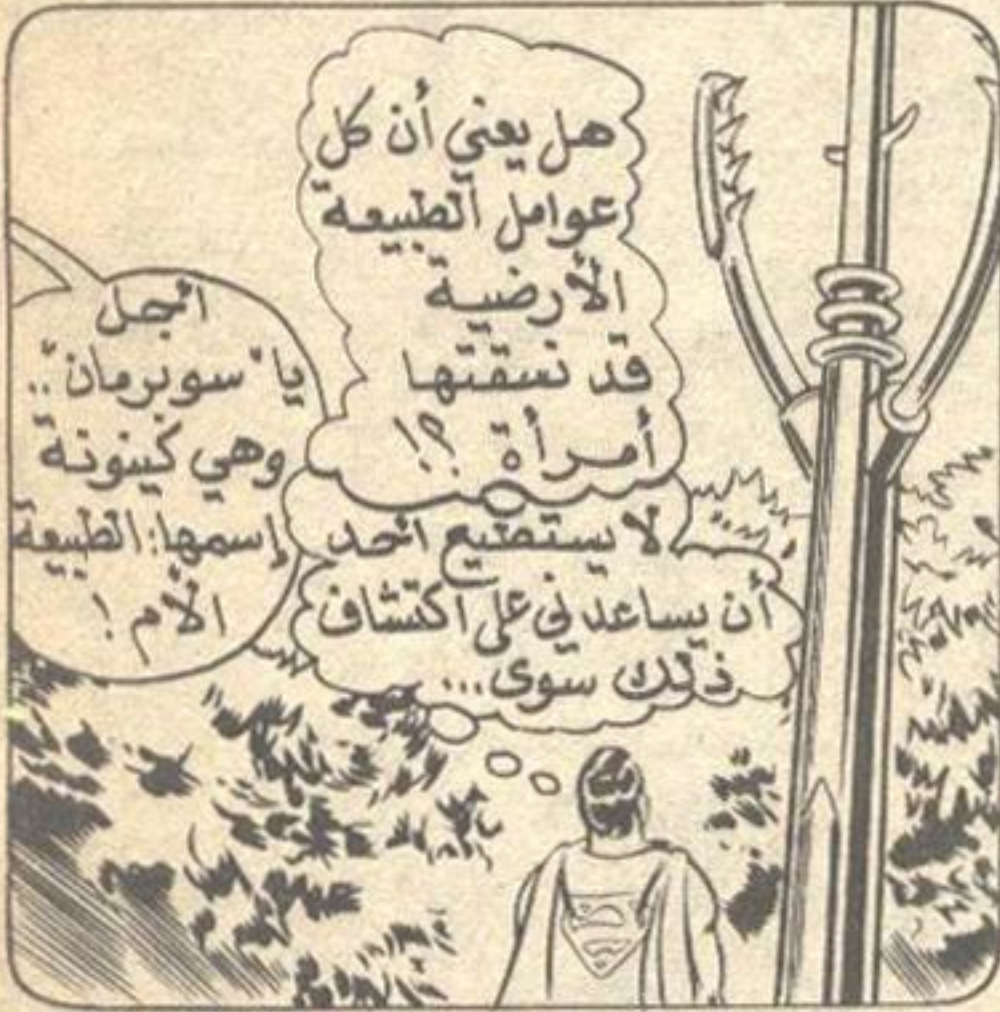 هل يعني أن كل
عوامل الطبيعة
الأرضية
قد نسقتها
أمرأة ؟!
لا يستطيع أحد
أن يساعدني على اكتشاف
ذلك سوى...
أجل
يا "سوبرمان"..
وهي كينونة
إسمها: الطبيعة
الأم !